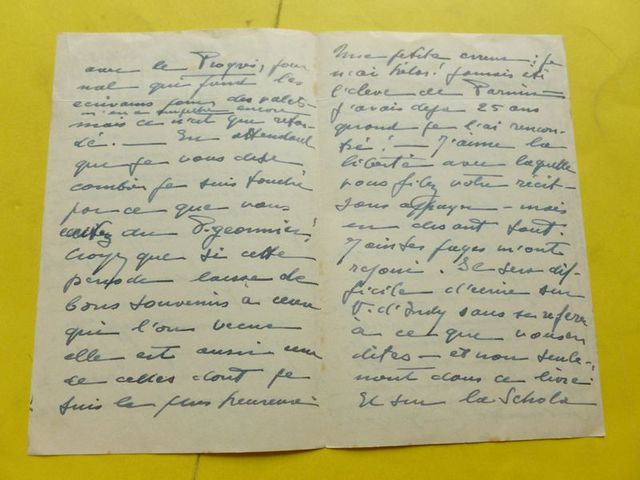 avec le Progrès, jour
nal qui font les
écrivains des valets
encore
mais ce n'est que retar
dé. — En attendant
que je vous dise
combien je suis touché
par ce que vous
du Pigeonnier,
Croyez que si cette
période laisse de
bons souvenirs à ceux
qui l'ont vécue
elle est aussi une
de celles dont je
suis le plus heureux
Une petite erreur : je
n'ai hélas! jamais été
l'élève de
J'avais déjà 25 ans
quand je l'ai rencon-
tré! — J'aime la
liberté avec laquelle
vous votre récit —
sans — mais
en disant tout.
pages m'ont
réjoui. Il sera dif-
ficile d'écrire sur
V. d'Indy sans se référer
à ce que vous en
dites — et non seule-
ment dans ce livre
Et sur la Schola